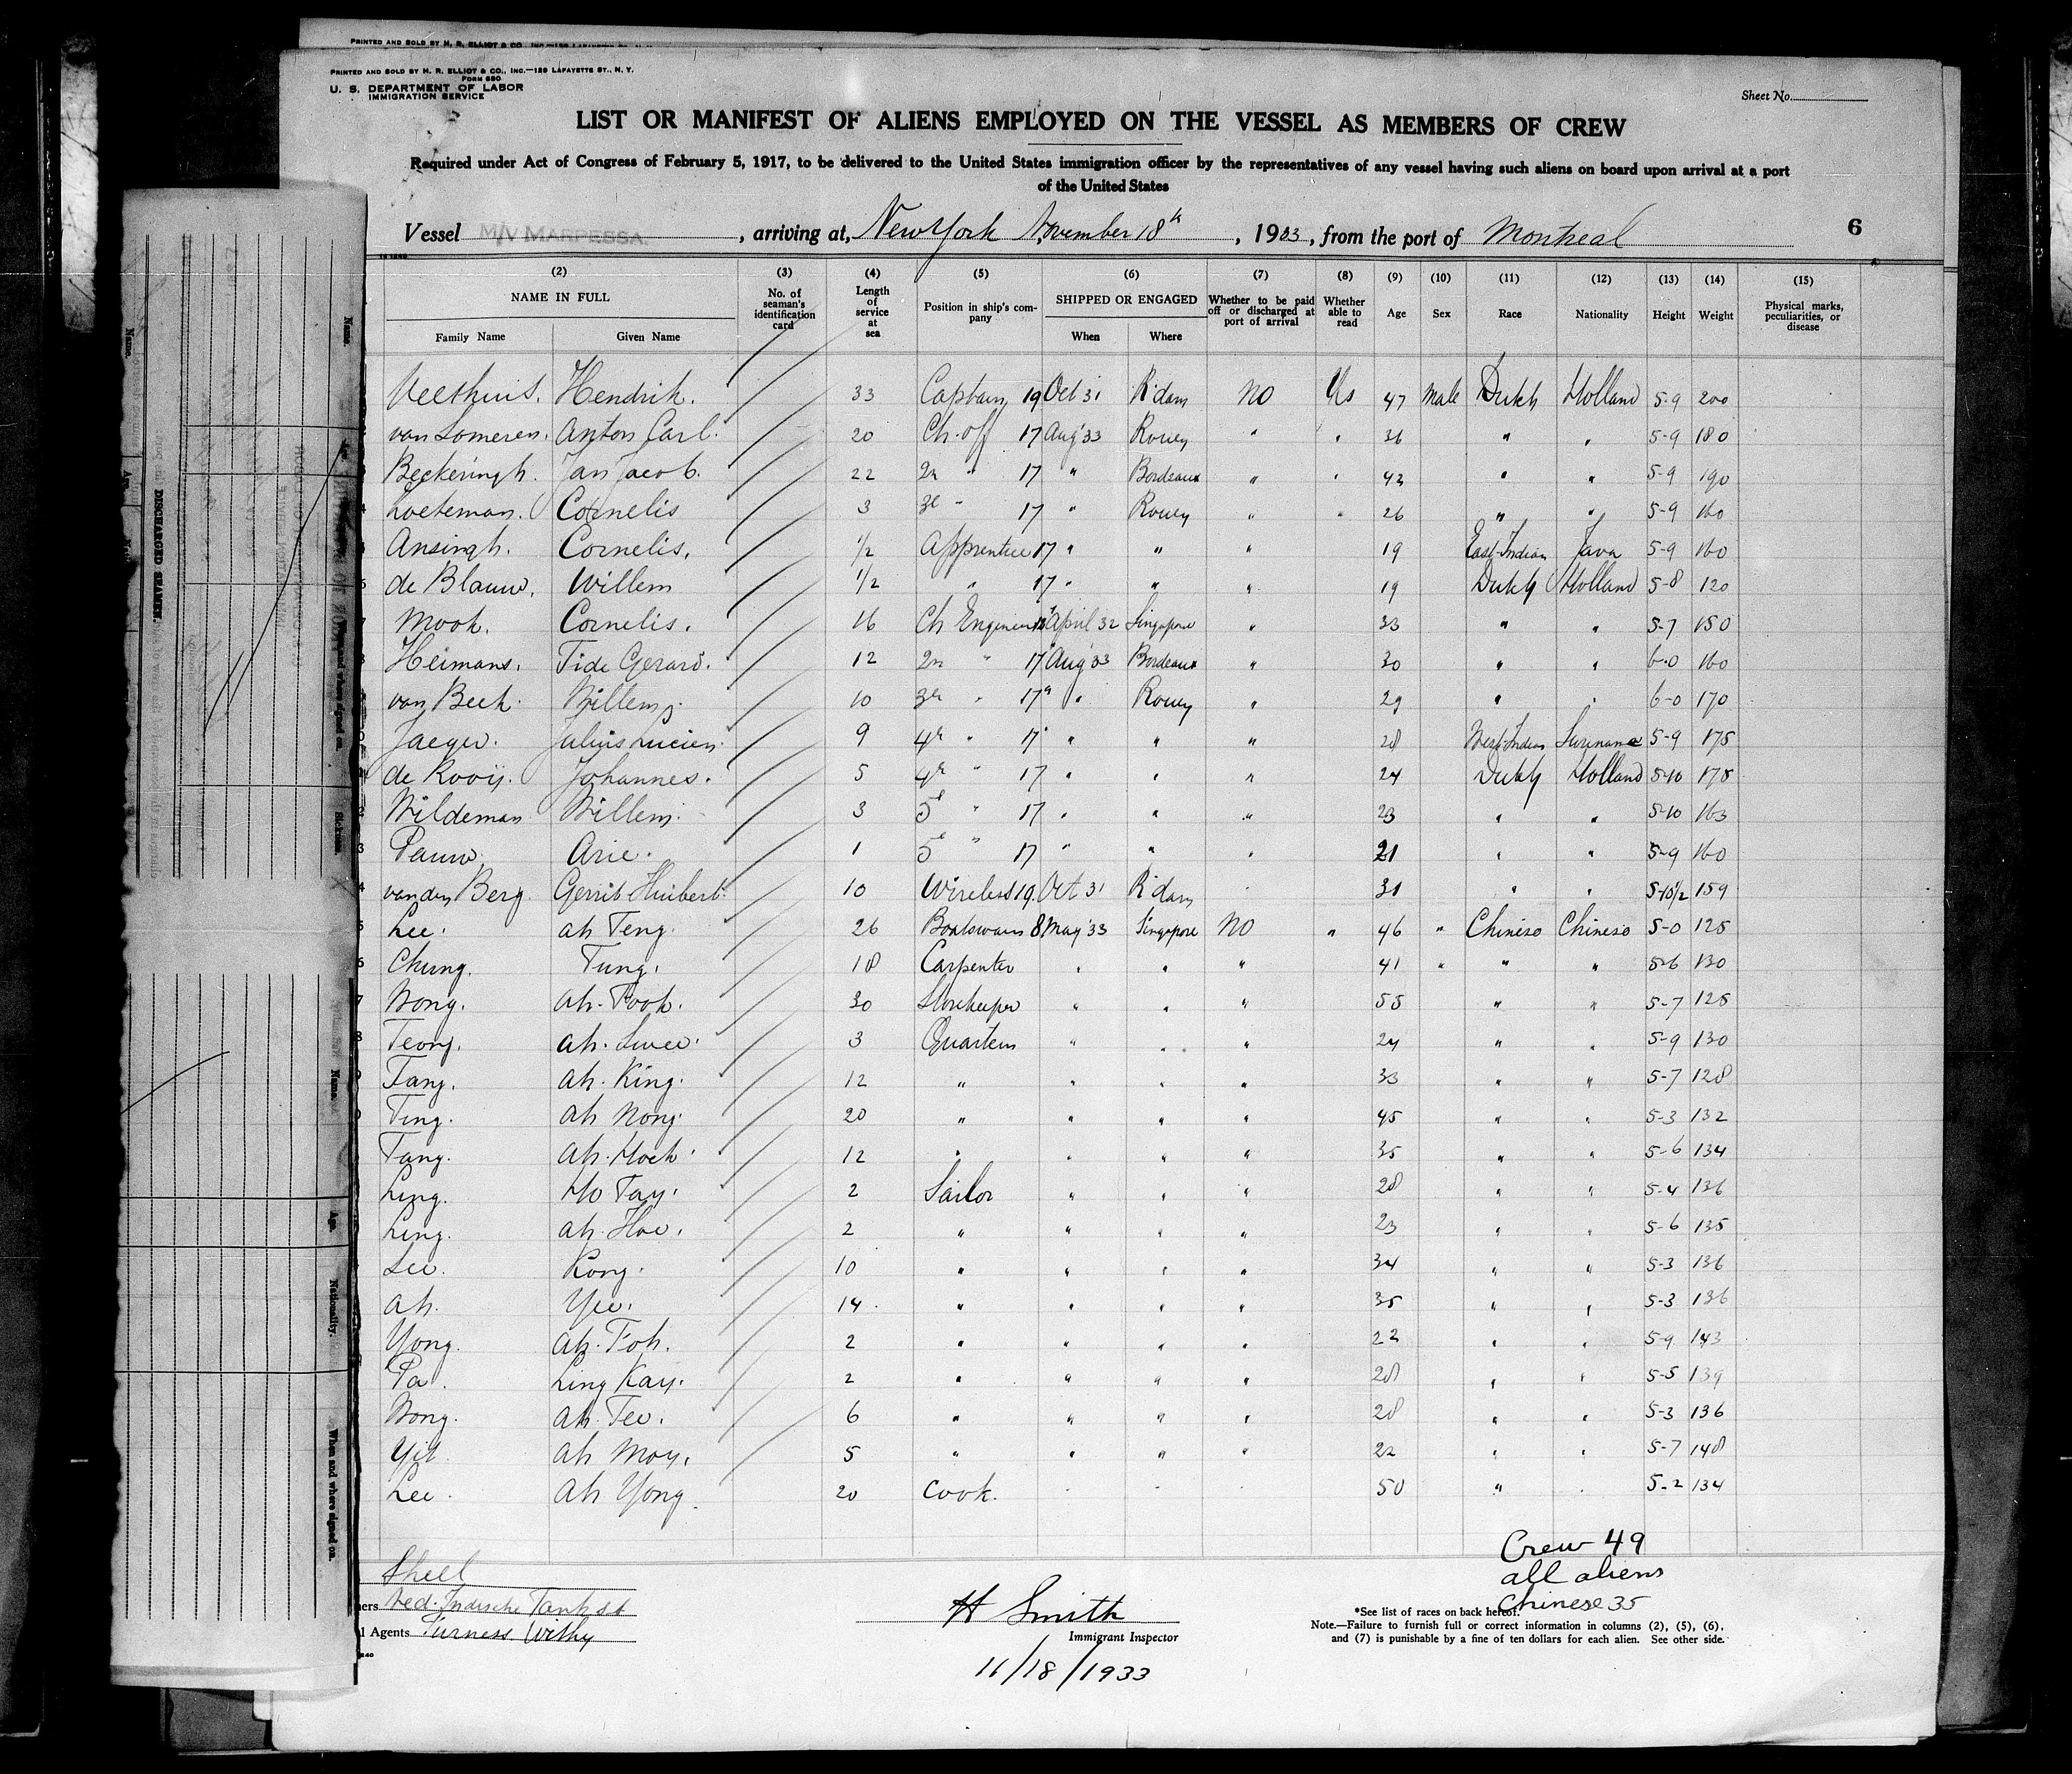 PRINTED AND SOLD BY H. R. ELLIOT & CO., INC.—129 LAFAYETTE ST., N. Y.
FORM 680
U. S. DEPARTMENT OF LABOR
IMMIGRATION SERVICE
Sheet No.
LIST OR MANIFEST OF ALIENS EMPLOYED ON THE VESSEL AS MEMBERS OF CREW
Required under Act of Congress of February 5, 1917, to be delivered to the United States immigration officer by the representatives of any vessel having such aliens on board upon arrival at a port
of the United States
Vessel M/V MARPESSA. , arriving at, New York November 18th , 1933 , from the port of Montreal 6
(2) (3) (4) (5) (6) (7) (8) (9) (10) (11) (12) (13) (14) (15)
NAME IN FULL No. of seaman's identification card Length of service at sea Position in ship's company SHIPPED OR ENGAGED Whether to be paid off or discharged at port of arrival Whether able to read Age Sex Race Nationality Height Weight Physical marks, peculiarities, or disease
Family Name Given Name When Where
Veethuis. Hendrik. 33 Captain 19 Oct 31 R'dam No Yes 47 Male Dutch Holland 5-9 200
van Someren. Anton Carl. 20 Ch. off 17 Aug '33 Rouen " " 36 " " 5-9 180
Beckeringh. Jan Jacob. 22 2n " 17 " Bordeaux " " 42 " " 5-9 190
Loeteman. Cornelis 3 3e " 17 " Rouen " " 26 " " 5-9 160
Ansingh. Cornelis. 1/2 Apprentice 17 " " " 19 East-Indian Java 5-9 160
de Blauw. Willem 1/2 " 17 " " " 19 Dutch Holland 5-8 120
Mook. Cornelis. 16 Ch Engineer April 32 Singapore " 33 " " 5-7 150
Heimans. Tide Gerard. 12 2n " 17 Aug '33 Bordeaux " 30 " " 6-0 160
van Beek. Willem. 10 3e " 17 " Rouen " 29 " " 6-0 170
Jaeger. Julius Lucien. 9 4e " 17 " " " 28 West-Indian Suriname 5-9 175
de Rooij. Johannes. 5 4e " 17 " " " 24 Dutch Holland 5-10 175
Wildeman Willem. 3 5e " 17 " " " 23 " " 5-10 163
Pauw. Arie. 1 5e " 17 " " " 21 " " 5-9 160
van den Berg Gerrit Huibert. 10 Wireless 19. Oct 31 R'dam " 31 " " 5-10 1/2 159
Lee. Ah Teng. 26 Boatswain 8 May '33 Singapore NO " 46 " Chinese Chinese 5-0 125
Chung. Tung. 18 Carpenter " " " 41 " " " 5-6 130
Wong. Ah. Fook. 30 Storekeeper " " " 55 " " 5-7 125
Teong. Ah. Swee. 3 Quarterm " " " 24 " " 5-9 130
Fang. Ah. King. 12 " " " " 33 " " 5-7 128
Ting. Ah Nong. 20 " " " " 45 " " 5-3 132
Tang. Ah. Hock. 12 " " " " 35 " " 5-6 134
Ling. Ho Tay. 2 Sailor " " " 28 " " 5-4 136
Ling. Ah. Hoe. 2 " " " " 23 " " 5-6 135
Lee. Kong. 10 " " " " 34 " " 5-3 136
Ah. Yee. 14. " " " " 35 " " 5-3 136
Yong. Ah. Foh. 2 " " " " 22 " " 5-9 143
Pa Ling Kay. 2 " " " " 28 " " 5-5 139
Wong. Ah. Tee. 6 " " " " 28 " " 5-3 136
Yit Ah Moy. 5 " " " " 22 " " 5-7 148
Lee. Ah Yong. 20 Cook. " " 50 " " 5-2 134
Crew 49
all aliens
Chinese 35
Shell
Ned. Indische Tankst
Agents Furness Withy
H Smith
Immigrant Inspector
11/18/1933
*See list of races on back hereof.
Note.—Failure to furnish full or correct information in columns (2), (5), (6),
and (7) is punishable by a fine of ten dollars for each alien. See other side.
DISCHARGED SEAMEN.
Name.
Age.
Nationality.
When and where signed on.
Sickness.